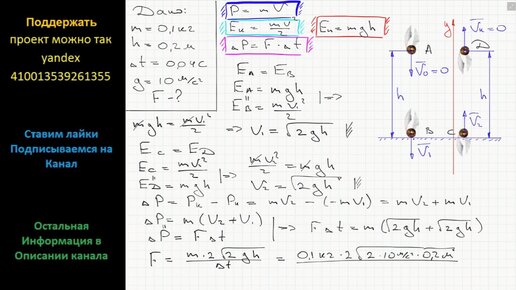 Поддержать
проект можно так
yandex
410013539261355
Ставим лайки
Подписываемся на
Канал
Остальная
Информация в
Описании канала
Дано:
m = 0,1 кг
h = 0,2 м
Δt = 0,04 с
g = 10 м/с²
F - ?
P = mV
Eк = mV²/2
Eп = mgh
ΔP = F · Δt
E_A = E_B
E_A = mgh
E_B = mV₁²/2 | =>
mgh = mV₁²/2 => V₁ = √2gh
E_C = E_D
E_C = mV₂²/2
E_D = mgh | => mV₂²/2 = mgh
V₂ = √2gh
ΔP = Pк - Pн = mV₂ - (-mV₁) = mV₂ + mV₁
ΔP = m(V₂ + V₁)
ΔP = FΔt | => FΔt = m(√2gh + √2gh)
F = m·2√2gh/Δt = 0,1 кг · 2√2·10 м/с² · 0,2 м
y
Vк = 0
A
D
V₀ = 0
h
h
B
C
V₁
V₂